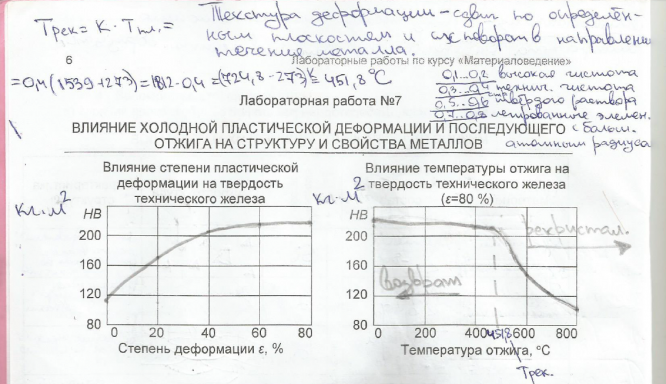 Tрек = K · Tпл. =
Текстура деформации – сдвиг по определён-
ным плоскостям и их поворот в направлении
течение металла.
6
Лабораторные работы по курсу «Материаловедение»
=0,4(1539+273)=1812·0,4=(724,8-273)K=451,8°C
0,1...0,2 высокая чистота
0,3...0,4 технич. чистота
0,5...0,6 твёрдого раствора
0,7...0,8 легированние элемен.
с больш.
атомным радиусом
Лабораторная работа №7
ВЛИЯНИЕ ХОЛОДНОЙ ПЛАСТИЧЕСКОЙ ДЕФОРМАЦИИ И ПОСЛЕДУЮЩЕГО
ОТЖИГА НА СТРУКТУРУ И СВОЙСТВА МЕТАЛЛОВ
Влияние степени пластической
деформации на твердость
технического железа
кг·м²
HB
200
160
120
80
0 20 40 60 80
Степень деформации ε, %
Влияние температуры отжига на
твердость технического железа
(ε=80 %)
кг·м²
HB
200
160
120
80
рекристал.
возврат
0 200 400 451,8 600 800
Температура отжига, °С
Tрек.